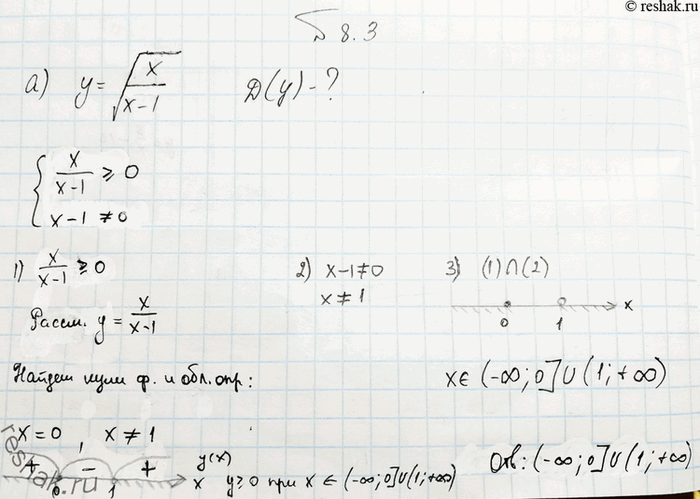 © reshak.ru
№ 8.3
а) y = √(x/(x-1)) D(y) - ?
{ x/(x-1) ≥ 0
x-1 ≠ 0
1) x/(x-1) ≥ 0 2) x-1≠0 3) (1)∩(2)
Рассм. y = x/(x-1) x ≠ 1
0 1 x
Найдем нули ф. и обл. опр: x ∈ (-∞; 0] ∪ (1; +∞)
x = 0, x ≠ 1
+ - + y(x)
0 1 x y ≥ 0 при x ∈ (-∞; 0] ∪ (1; +∞) Отв: (-∞; 0] ∪ (1; +∞)
reshak.ru